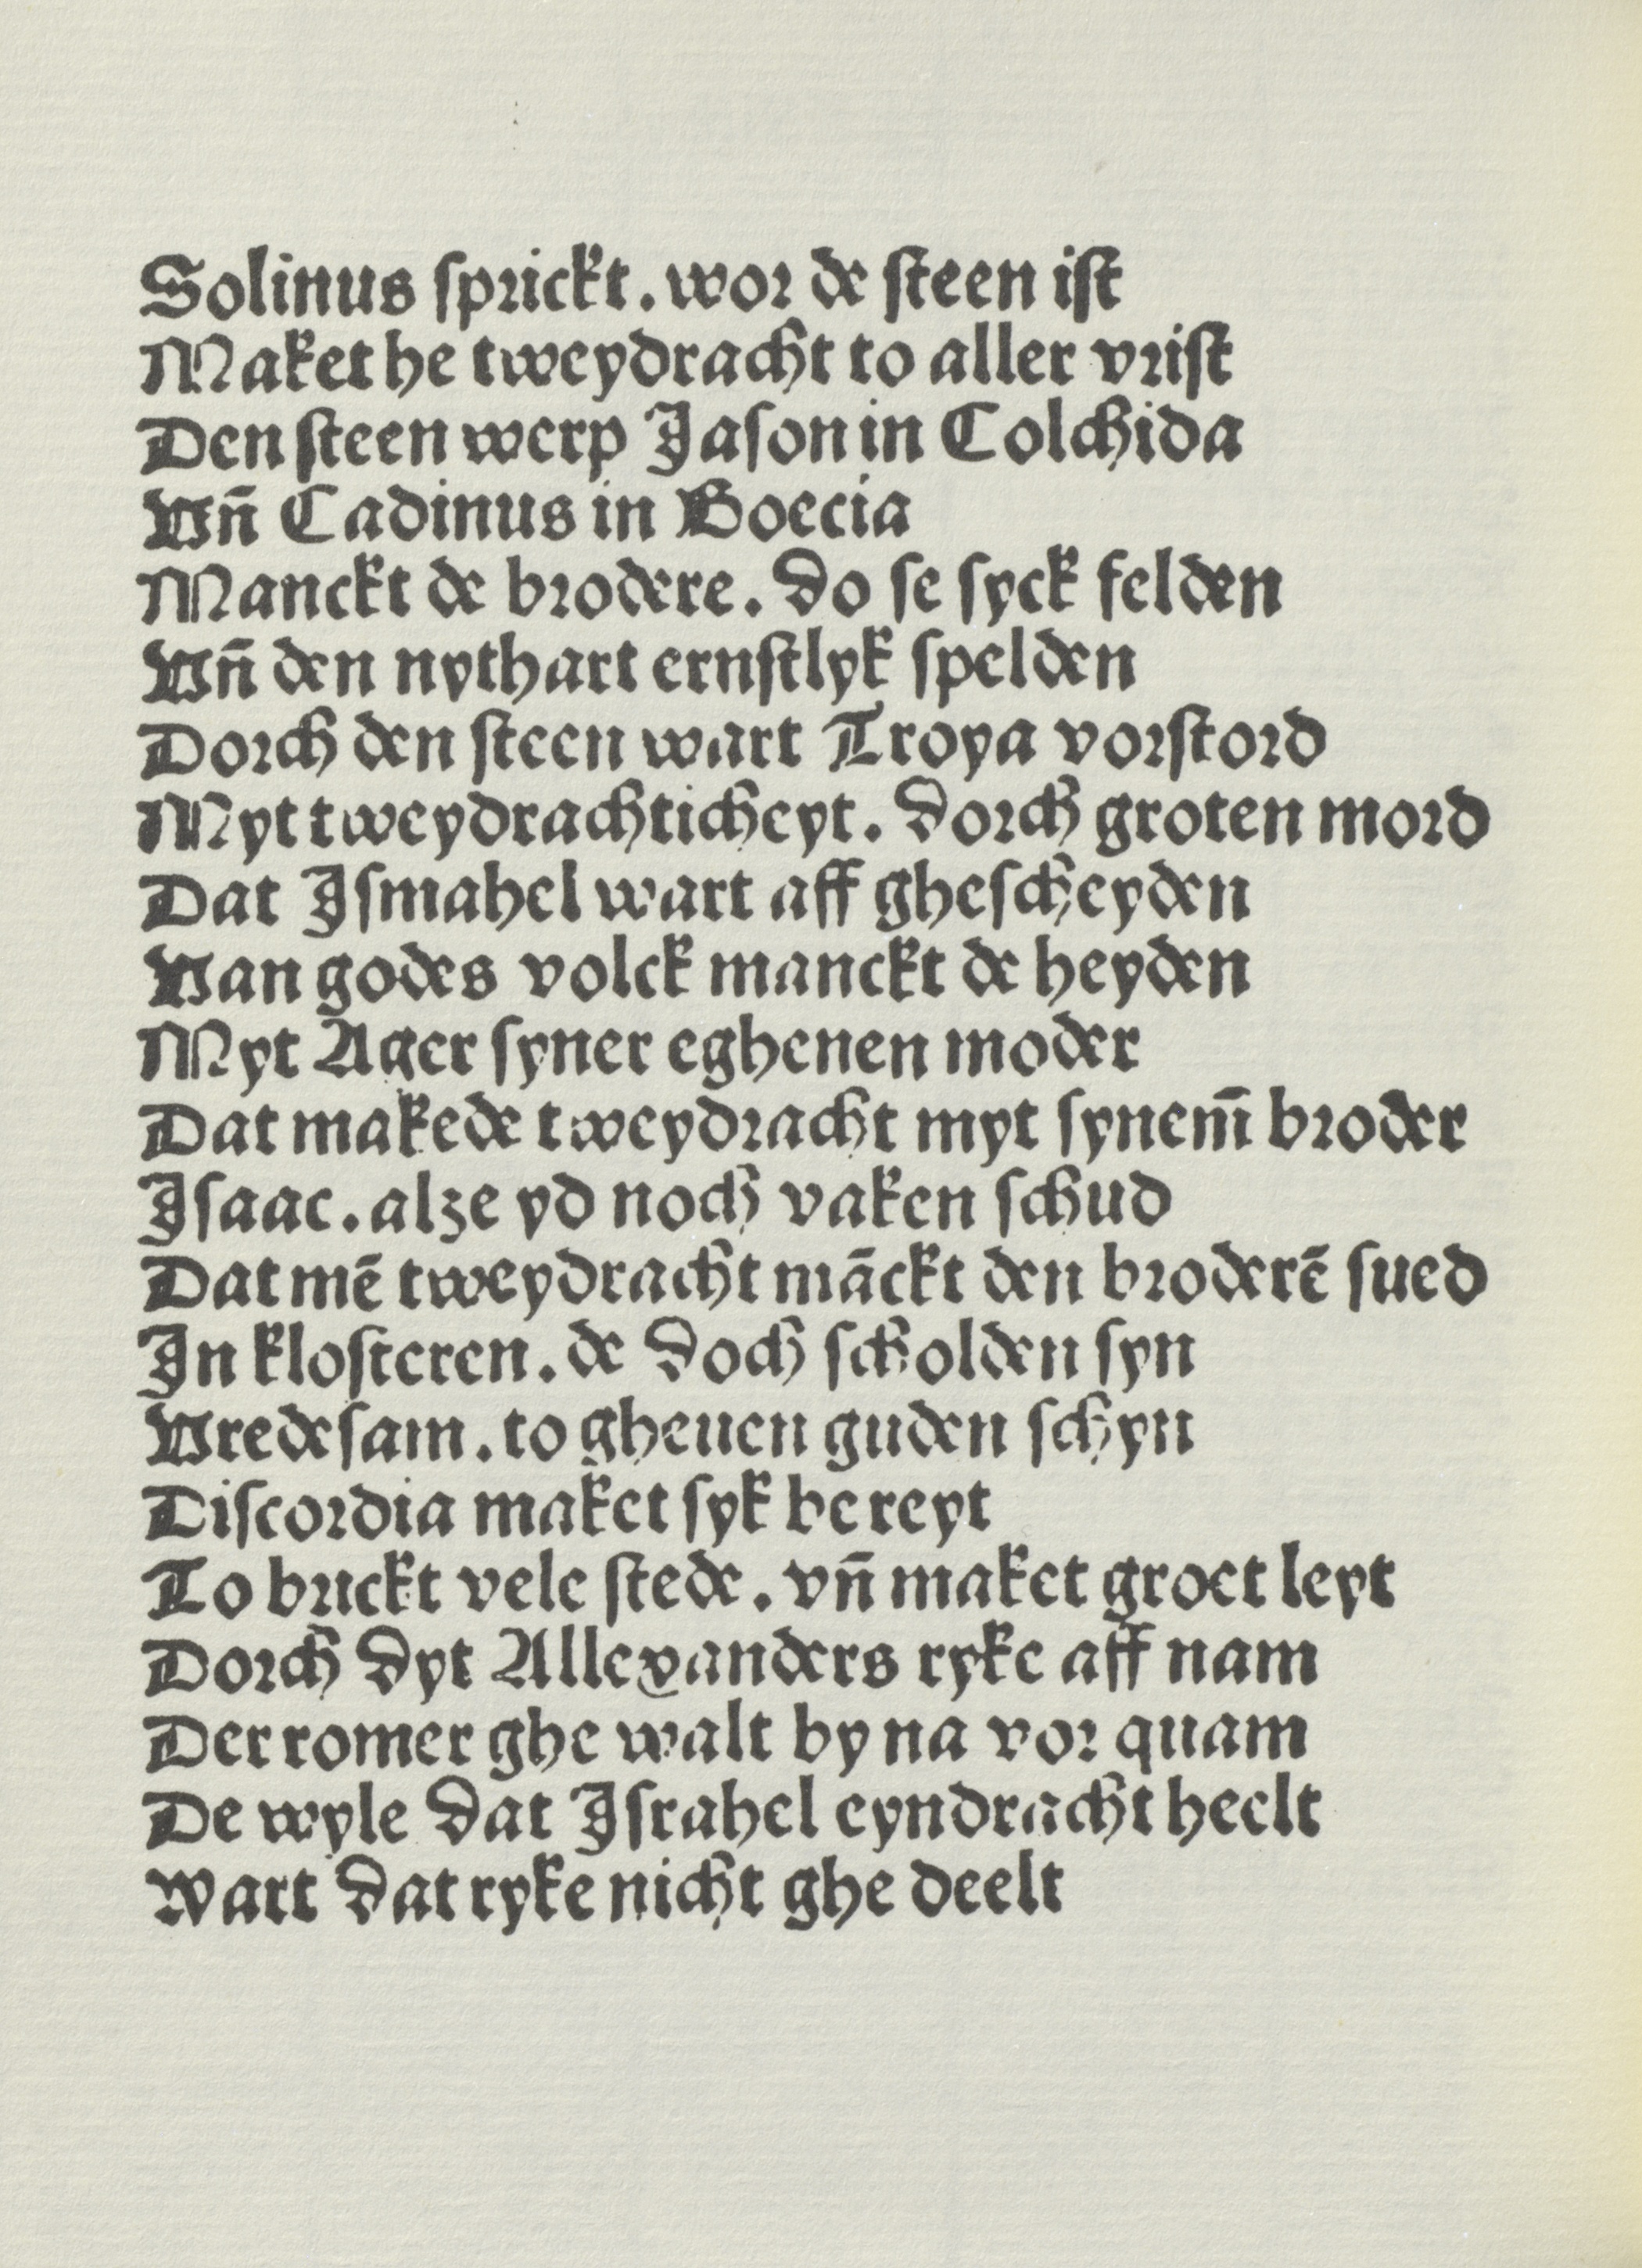 Solinus ſprickt. wor de ſteen iſt
Maket he tweydracht to aller vriſt
Den ſteen werp Jaſon in Colchida
Vñ Cadinus in Boecia
Manckt de brodere. Do ſe ſyck felden
Vñ den nythart ernſtlyk ſpelden
Dorch den ſteen wart Troya vorſtord
Myt tweydrachticheyt. Dorch groten mord
Dat Jſmahel wart aff gheſcheyden
Van godes volck manckt de heyden
Myt Ager ſyner eghenen moder
Dat makede tweydracht myt ſynem̄ broder
Jſaac. alze yd noch vaken ſchud
Dat mē tweydracht māckt den broderē ſued
Jn kloſteren. de Doch ſcholden ſyn
Vredeſam. to gheuen guden ſchyn
Diſcordia maket ſyk be reyt
To bruckt vele ſtede. vñ maket groet leyt
Dorch Dyt Allexanders ryke aff nam
Der romer ghe walt by na vor quam
De wyle Dat Jſrahel eyndracht heelt
Wart Dat ryke nicht ghe deelt